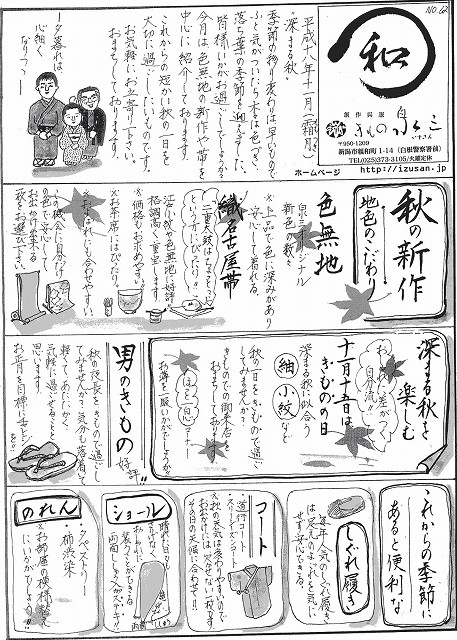 NO.62
和
創作呉服
きもの 泉三
いずさん
〒950-1209
新潟市緬和町1-14(白根警察署前)
TEL(025)373-3105/火曜定休
ホームページ
http://izusan.jp
平成十八年十一月(霜月)
深まる秋
季節の移り変わりは早いもので
ふと気がついたら木々も色づく
落ち葉の季節を迎えました。
皆様いかがお過ごしでしょうか。
今月は色無地の新作や帯を
中心に紹介しております。
これからの短かい秋の一日を
大切に過ごしたいものです。
お気軽にお立寄り下さい。
おまちしております。
夕暮れは
心細く
なりつつ
秋の新作
地色のこだわり
色無地
泉三オリジナル
新色の数々
※上品で色に深みがあり
安心して着れる。
織名古屋帯
二重太鼓はちょっと…
という方にぴったり!!
江戸小紋や色無地に好評
格調高く重宝します
※価格もお求めやすい
※お茶席にはぴったり。
※まわりにも合わせやすい。
この機会に自分だけ
の色で安心して
お出かけ出来る
秋をお選び下さい。
深まる秋を
楽しむ
おしゃれに差がつく
自分流!!
十一月十五日は
きものの日
深まる秋に似合う
紬 小紋 など
秋の一日をきもので過ごし
てみませんか?
きものでの御来店
おまちしております
ほっと一息
お茶を一服いかがでしょうか?
男のきもの 好評!!
秋の夜長をきもので過ごし
てみませんか?気分も落着いて
軽くてあたたかく
気軽に過ごせることと
思います。
お正月を目標にチャレンジを!!
これからの季節に
あると便利な
しぐれ履き
毎年人気のしぐれ履き
は足元のよごれを気に
せず安心できる。
コート
・道行コート
・スリーシーズンコート
※秋の天気は変わりやすいので
お出かけには欠かせない一枚です
その日の天候に合わせて!!
ショール
のれん
・タペストリー
・柿渋染
※お部屋の模様替え
にいかがでしょうか?